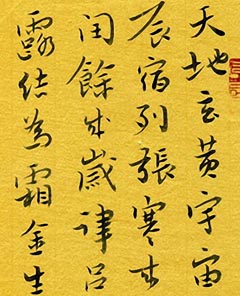 天地玄黃宇宙
辰宿列張寒來
閏餘成歲律呂
露結為霜金生